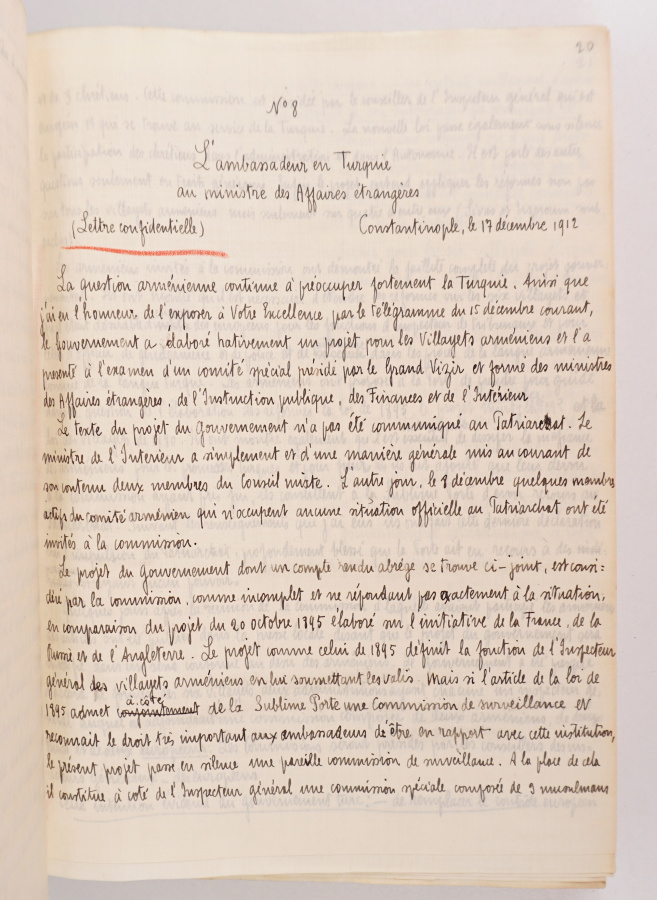 20
N° 8
L'ambassadeur en Turquie
au ministre des Affaires étrangères
(Lettre confidentielle)
Constantinople, le 17 décembre 1912
La question arménienne continue à préoccuper fortement la Turquie. Ainsi que
j'ai eu l'honneur de l'exposer à Votre Excellence par le télégramme du 15 décembre courant,
le Gouvernement a élaboré hativement un projet pour les Villayets arméniens et l'a
presenté à l'examen d'un comité spécial présidé par le Grand Vizir et formé des ministres
des Affaires étrangères, de l'Instruction publique, des Finances et de l'Intérieur
Le texte du projet du Gouvernement n'a pas été communiqué au Patriarchat. Le
ministre de l'Interieur a simplement et d'une manière générale mis au courant de
son contenu deux membres du Conseil mixte. L'autre jour, le 8 décembre quelques membres
actifs du comité arménien qui n'occupent aucune situation officielle au Patriarchat ont été
invités à la commission.
Le projet du Gouvernement dont un compte rendu abrégé se trouve ci-joint, est consi=
déré par la commission, comme incomplet et ne répondant pas exactement à la situation,
en comparaison du projet du 20 octobre 1895 élaboré sur l'initiative de la France, de la
Russie et de l'Angleterre. Le projet comme celui de 1895 définit la fonction de l'Inspecteur
général des villayets arméniens en lui soumettant les valis. Mais si l'article de la loi de
1895 admet conjointement à côté de la Sublime Porte une Commission de surveillance et
reconnait le droit très important aux ambassadeurs d'être en rapport avec cette institution,
le présent projet passe en silence une pareille commission de surveillance. A la place de cela
il constitue à coté de l'Inspecteur général une commission spéciale composée de 3 musulmans